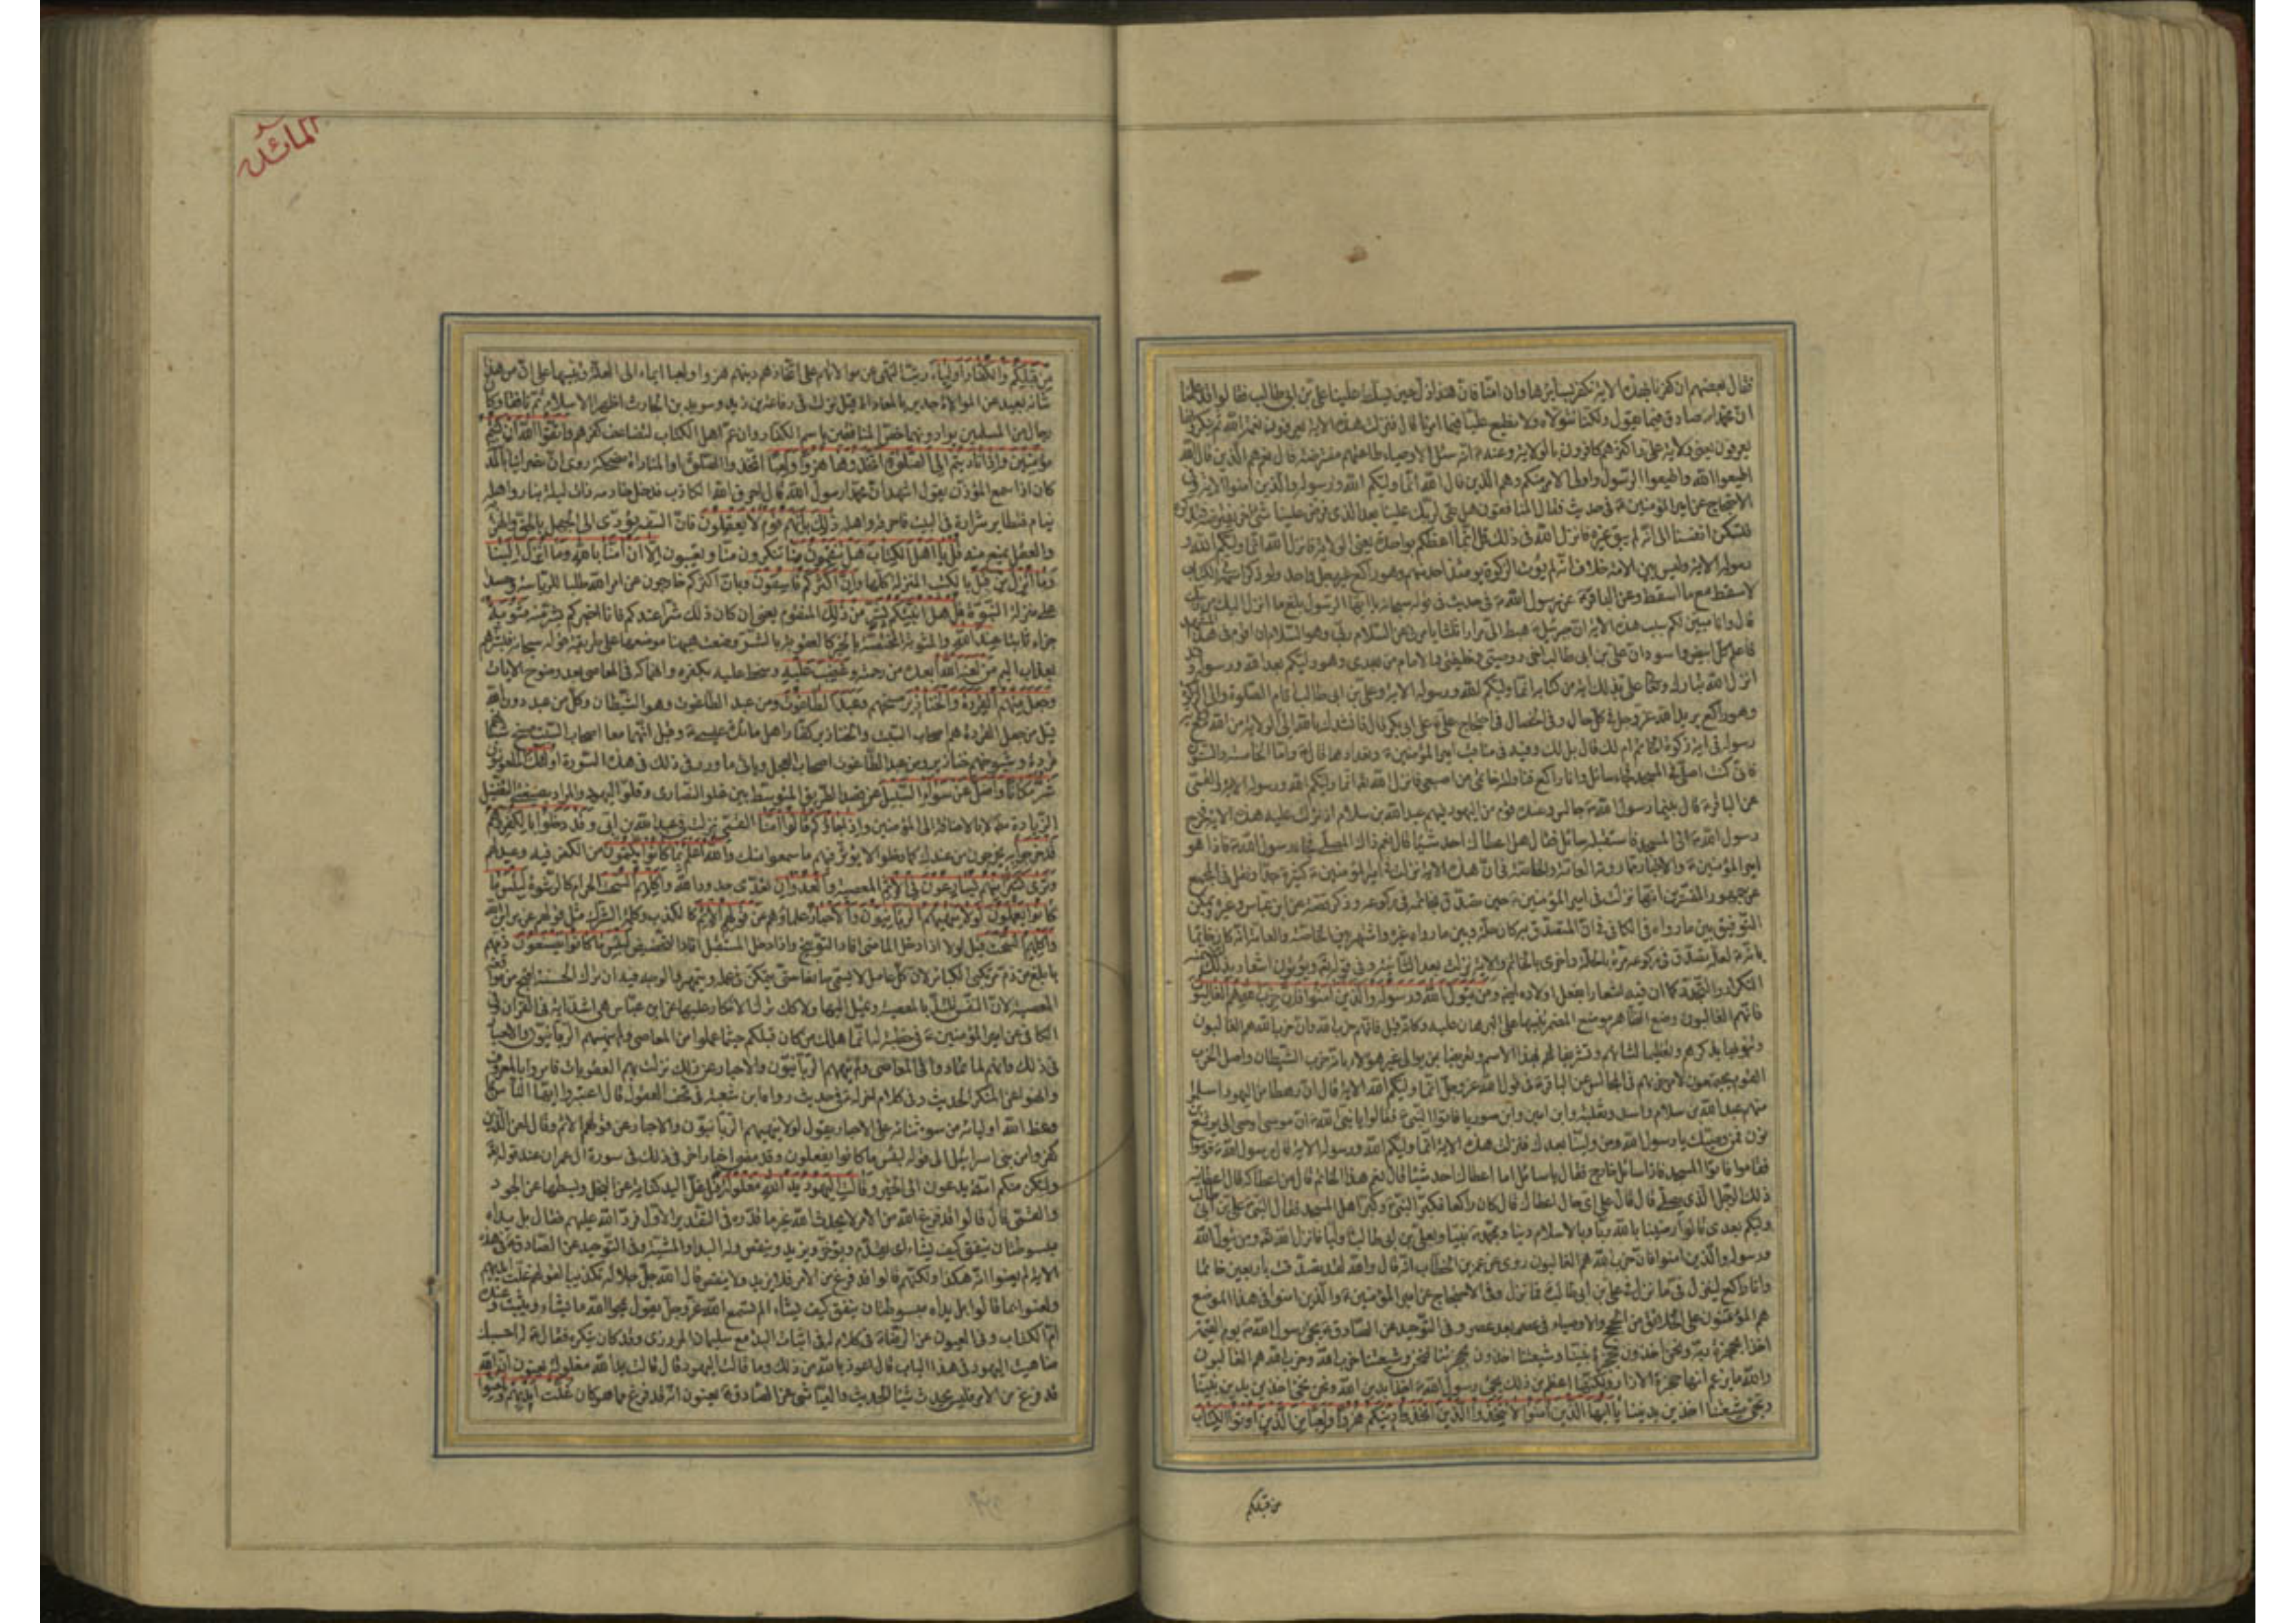 فقال بعضهم ان كفرنا بهذه الاية نكفر بسايرها وان امنا فان هذا ذل حين يسلط علينا علي بن ابي طالب فقالوا قد علمنا
ان محمدا صادق فيما يقول ولكنا نتولاه ولا نطيع عليا فيما امرنا قال فنزلت هذه الاية يعرفون نعمة الله ثم ينكرونها
يعرفون يعني ولاية علي واكثرهم كافرون بالولاية وعنه انه سئل الاوصياء طاعتهم مفترضة قال نعم هم الذين قال الله
اطيعوا الله واطيعوا الرسول واولي الامر منكم وهم الذين قال الله انما وليكم الله ورسوله والذين امنوا الاية وفي
الاحتجاج عن امير المؤمنين في حديث فقال المنافقون هل بقي لربك علينا بعد الذي فرض علينا شيء اخر يفترضه
لتسكن انفسنا الى انه لم يبق غيره فانزل الله في ذلك قل انما اعظكم بواحدة يعني الولاية فانزل الله انما وليكم الله و
رسوله الاية وليس بين الامة خلاف انه لم يؤت الزكوة يومئذ احد منهم وهو راكع غير رجل واحد ولو ذكر اسمه في الكتاب
لاسقط مع ما اسقط وعن الباقر عن رسول الله في حديث في قوله سبحانه يا ايها الرسول بلغ ما انزل اليك من ربك
قال وانا مبين لكم سبب هذه الاية ان جبرئيل هبط الي مرارا ثلثا يامرني عن السلام ربي وهو السلام ان اقوم في هذا المشهد
فاعلم كل ابيض واسود ان علي بن ابي طالب اخي ووصيي وخليفتي والامام من بعدي وهو وليكم بعد الله ورسوله وقد
انزل الله تبارك وتعالى علي بذلك اية من كتابه انما وليكم الله ورسوله الاية وعلي بن ابي طالب اقام الصلوة واتى الزكوة
وهو راكع يريد الله عز وجل في كل حال وفي الخصال في احتجاج علي على ابي بكر قال فانشدك بالله الي الولاية من الله مع ولاية
رسوله في اية زكوة الخاتم ام لك قال بل لك وفيه في مناقب امير المؤمنين وتعدادها قال واما الخامسة والستون
فاني كنت اصلي في المسجد فجاء سائل وانا راكع فناولته خاتمي من اصبعي فانزل الله انما وليكم الله ورسوله الاية والقمي
عن الباقر قال بينما رسول الله جالس وعنده قوم من اليهود فيهم عبد الله بن سلام اذ نزلت عليه هذه الاية فخرج
رسول الله الى المسجد فاستقبله سائل فقال هل اعطاك احد شيئا قال نعم ذاك المصلي فجاء رسول الله فاذا هو
امير المؤمنين والاخبار مما روته العامة والخاصة في ان هذه الاية نزلت في امير المؤمنين كثيرة جدا ونقل في المجمع
عن جمهور المفسرين انها نزلت في امير المؤمنين حين تصدق بخاتمه في ركوعه وذكر قصته عن ابن عباس وغيره ويمكن
التوفيق بين ما رواه في الكافي ان المتصدق به كان حلة وبين ما رواه غيره واشتهر بين الخاصة والعامة انه كان خاتما
بانه لعله تصدق في ركوعه مرة بالحلة واخرى بالخاتم والاية نزلت بعد الثانية وفي قوله ويؤتون اشعار بذلك
التكرار والتجدد كما ان فيه اشعارا بفعل اولاده ايضا ومن يتول الله ورسوله والذين امنوا فان حزب الله هم الغالبون
فانهم الغالبون وضع الظاهر موضع المضمر تنبيها على البرهان عليه وكانه قيل فانهم حزب الله وان حزب الله هم الغالبون
وتنويها بذكرهم وتعظيما لشانهم وتشريفا لهم بهذا الاسم وتعريضا بمن يوالي غير هؤلاء بانه حزب الشيطان واصل الحزب
القوم يجتمعون لامر حزبهم في المجالس عن الباقر في قول الله عز وجل انما وليكم الله الاية قال ان رهطا من اليهود اسلموا
منهم عبد الله بن سلام واسد وثعلبة وابن امين وابن صوريا فاتوا النبي فقالوا يا نبي الله ان موسى اوصى الى يوشع بن
نون فمن وصيك يا رسول الله ومن ولينا بعدك فنزلت هذه الاية انما وليكم الله ورسوله الاية قال رسول الله قوموا
فقاموا فاتوا المسجد فاذا سائل خارج فقال يا سائل اما اعطاك احد شيئا قال نعم هذا الخاتم قال من اعطاكه قال اعطانيه
ذلك الرجل الذي يصلي قال على اي حال اعطاك قال كان راكعا فكبر النبي وكبر اهل المسجد فقال النبي علي بن ابي طالب
وليكم بعدي قالوا رضينا بالله ربا وبالاسلام دينا وبمحمد نبيا وبعلي بن ابي طالب وليا فانزل الله ومن يتول الله
ورسوله والذين امنوا فان حزب الله هم الغالبون روي عن عمر بن الخطاب انه قال والله لقد تصدقت باربعين خاتما
وانا راكع لينزل في ما نزل في علي بن ابي طالب فما نزل وفي الاحتجاج عن امير المؤمنين والذين امنوا في هذا الموضع
هم المؤتمنون على الخلائق من الحجج والاوصياء في عصر بعد عصر وفي التوحيد عن الصادق يجيء رسول الله يوم القيمة
اخذا بحجزة ربه ونحن اخذون بحجزة نبينا وشيعتنا اخذون بحجزتنا فنحن وشيعتنا حزب الله وحزب الله هم الغالبون
والله ما يزعم انها حجزة الازار ولكنها اعظم من ذلك يجيء رسول الله اخذا بدين الله ونحن نجيء اخذين بدين نبينا
وتجيء شيعتنا اخذين بديننا يا ايها الذين امنوا لا تتخذوا الذين اتخذوا دينكم هزوا ولعبا من الذين اوتوا الكتاب
من قبلكم
المائدة
من قبلكم والكفار اولياء رتب النهي عن موالاتهم على اتخاذهم دينهم هزوا ولعبا ايماء الى العلة وتنبيها على ان من هذا
شانه بعيد عن الموالاة جدير بالمعاداة قيل نزلت في رفاعة بن زيد وسويد بن الحارث اظهرا الاسلام ثم نافقا وكان
رجال من المسلمين يوادونهما خص المنافقين باسم الكفار وان عم اهل الكتاب لتضاعف كفرهم واتقوا الله ان كنتم
مؤمنين واذا ناديتم الى الصلوة اتخذوها هزوا ولعبا اتخذوا الصلوة او المناداة مضحكة روي ان نصرانيا بالمدينة
كان اذا سمع المؤذن يقول اشهد ان محمدا رسول الله قال احرق الله الكاذب فدخل خادمه ذات ليلة بنار واهله
نيام فتطاير شرارة في البيت فاحرقه واهله ذلك بانهم قوم لا يعقلون فان السفه يؤدي الى الجهل بالحق والهزء
والعقل يمنع منه قل يا اهل الكتاب هل تنقمون منا تنكرون منا وتعيبون الا ان امنا بالله وما انزل الينا
وما انزل من قبل بالكتب المنزلة كلها وان اكثركم فاسقون وبان اكثركم خارجون عن امر الله طلبا للرياسة وحسدا
على منزلة النبوة قل هل انبئكم بشر من ذلك المنقوم يعني ان كان ذلك شرا عندكم فانا اخبركم بشر منه مثوبة
جزاء ثابتا عند الله والمثوبة المختصة بالخير كالعقوبة بالشر وضعت ههنا موضعها على طريقة قوله سبحانه فبشرهم
بعذاب اليم من لعنه الله ابعده من رحمته وغضب عليه وسخط عليه بكفره وانهماكه في المعاصي بعد وضوح الايات
وجعل منهم القردة والخنازير مسخهم وعبد الطاغوت ومن عبد الطاغوت وهو الشيطان وكل من عبد دون الله
قيل من جعل القردة هم اصحاب السبت والخنازير كفار اهل مائدة عيسى وقيل انهما معا اصحاب السبت مسخ شبانهم
قردة وشيوخهم خنازير ومن عبد الطاغوت اصحاب العجل وياتي ما ورد في ذلك في هذه السورة اولئك الملعونون
شر مكانا واضل عن سواء السبيل عن قصد الطريق المتوسط بين غلو النصارى وقلو اليهود والمراد بصيغتي التفضيل
الزيادة مطلقا لا بالاضافة الى المؤمنين واذا جاؤكم قالوا امنا القمي نزلت في عبد الله بن ابي وقد دخلوا بالكفر وهم
قد خرجوا به يخرجون من عندك كما دخلوا لا يؤثر فيهم ما سمعوا منك والله اعلم بما كانوا يكتمون من الكفر فيه وعيد لهم
وترى كثيرا منهم يسارعون في الاثم المعصية والعدوان تعدي حدود الله واكلهم السحت الحرام كالرشوة لبئس ما
كانوا يعملون لولا ينهيهم الربانيون والاحبار علماؤهم عن قولهم الاثم كالكذب وكلمة الشرك مثل قولهم عزير ابن الله
واكلهم السحت قيل لولا اذا دخل الماضي افاد التوبيخ واذا دخل المستقبل افاد التحضيض لبئس ما كانوا يصنعون ذمهم
بابلغ من ذم مرتكبي الكبائر لان كل عامل لا يسمى صانعا حتى يتمكن في عمله ويتمهر والوجه فيه ان ترك الحسنة اقبح من مواقعة
المعصية لان النفس تلتذ بالمعصية وتميل اليها ولا كذلك ترك الانكار عليها عن ابن عباس هي اشد اية في القران وفي
الكافي عن امير المؤمنين في خطبة له انما هلك من كان قبلكم حيثما عملوا من المعاصي ولم ينههم الربانيون والاحبار
في ذلك وانهم لما تمادوا في المعاصي ولم ينههم الربانيون والاحبار عن ذلك نزلت بهم العقوبات فامروا بالمعروف
وانهوا عن المنكر الحديث وفي كلام اخر له في حديث رواه ابن شعبة في تحف العقول قال اعتبروا ايها الناس بما
وعظ الله اولياءه من سوء ثنائه على الاحبار يقول لولا ينهيهم الربانيون والاحبار عن قولهم الاثم وقال لعن الذين
كفروا من بني اسرائيل الى قوله لبئس ما كانوا يفعلون وقد مضى اخبار اخر في ذلك في سورة ال عمران عند قوله
ولتكن منكم امة يدعون الى الخير وقالت اليهود يد الله مغلولة قيل غل اليد كناية عن البخل وبسطها عن الجود
والقمي قال قالوا قد فرغ الله من الامر لا يحدث الله غير ما قدره في التقدير الاول فرد الله عليهم فقال بل يداه
مبسوطتان ينفق كيف يشاء اي يقدم ويؤخر ويزيد وينقص وله البداء والمشية وفي التوحيد عن الصادق في هذه
الاية لم يعنوا انه هكذا ولكنهم قالوا قد فرغ من الامر فلا يزيد ولا ينقص قال الله جل جلاله تكذيبا لقولهم غلت ايديهم
ولعنوا بما قالوا بل يداه مبسوطتان ينفق كيف يشاء الم تسمع الله عز وجل يقول يمحوا الله ما يشاء ويثبت وعنده
ام الكتاب وفي العيون عن الرضا في كلام له في اثبات البداء مع سليمان المروزي وقد كان ينكره فقال له احسبك
ضاهيت اليهود في هذا الباب قال اعوذ بالله من ذلك وما قالت اليهود قال قالت يد الله مغلولة يعنون ان الله
قد فرغ من الامر فليس يحدث شيئا الحديث والعياشي عن الصادق يعنون انه قد فرغ مما هو كائن غلت ايديهم ولعنوا